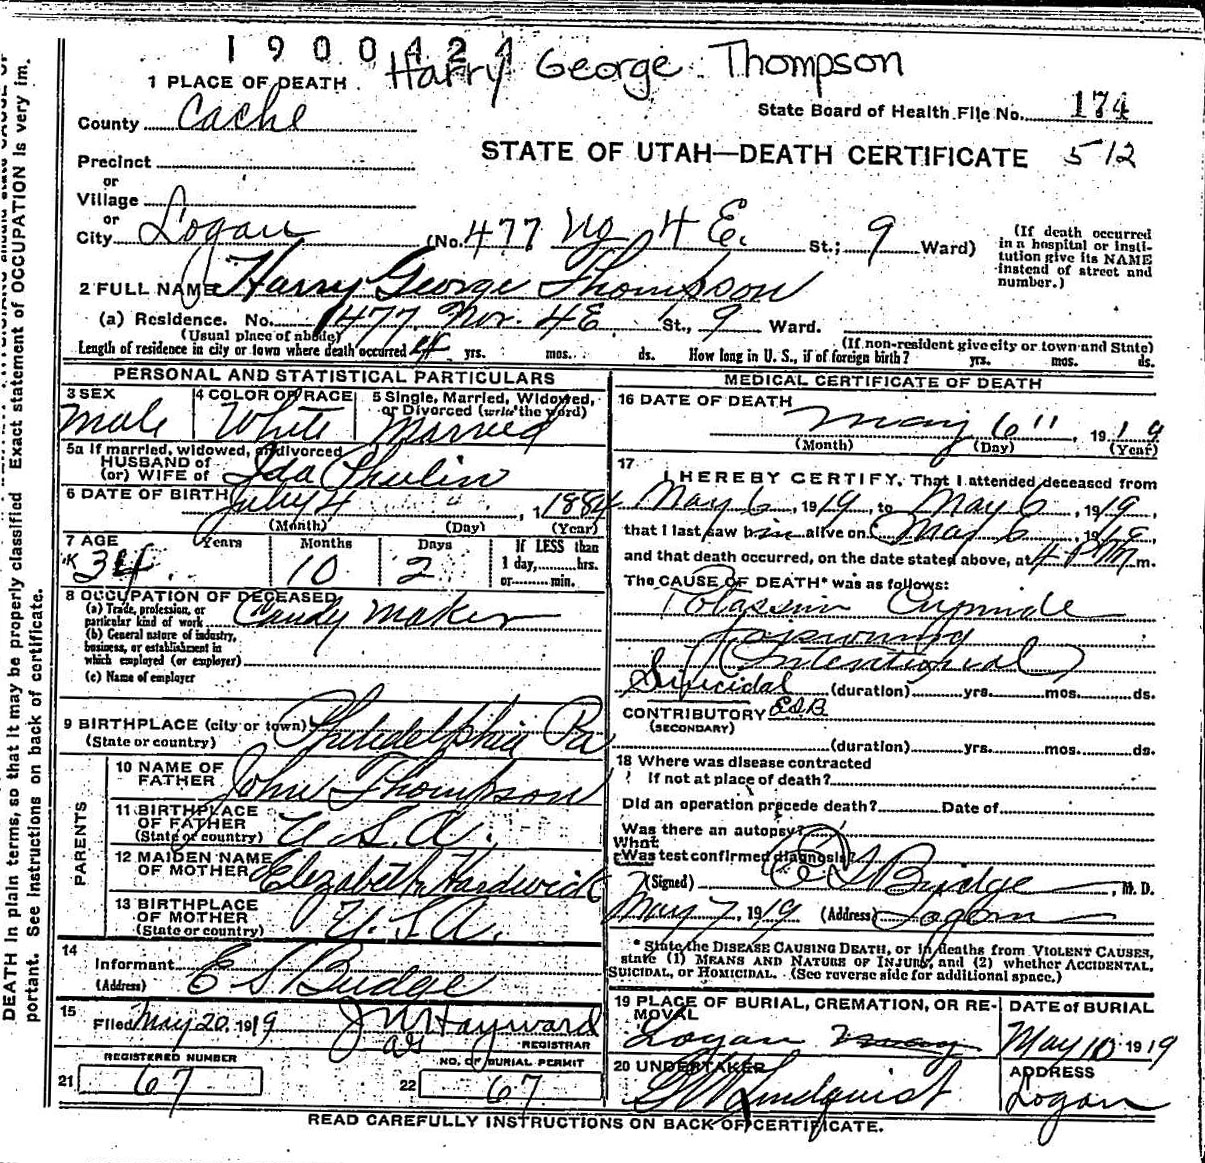 1900424
Harry George Thompson
1 PLACE OF DEATH
State Board of Health File No. 174
County Cache
STATE OF UTAH—DEATH CERTIFICATE 512
Precinct
or
Village
or
City Logan (No. 477 No 4 E. St.; 9 Ward)
(If death occurred in a hospital or insti-
tution give its NAME
instead of street and
number.)
2 FULL NAME Harry George Thompson
(a) Residence. No. 477 Nor. 4 E St., 9 Ward.
(Usual place of abode) (If non-resident give city or town and State)
Length of residence in city or town where death occurred 4 yrs. mos. ds. How long in U. S., if of foreign birth? yrs. mos. ds.
PERSONAL AND STATISTICAL PARTICULARS
3 SEX Male
4 COLOR OR RACE White
5 Single, Married, Widowed,
or Divorced (write the word)
Married
5a If married, widowed, or divorced
HUSBAND of
(or) WIFE of Ida
6 DATE OF BIRTH July 4, 1884
(Month) (Day) (Year)
7 AGE Years Months Days If LESS than
34 10 2 1 day, hrs.
or min.
8 OCCUPATION OF DECEASED
(a) Trade, profession, or
particular kind of work Candy Maker
(b) General nature of industry,
business, or establishment in
which employed (or employer)
(c) Name of employer
9 BIRTHPLACE (city or town) Philidelphia Pa
(State or country)
PARENTS
10 NAME OF
FATHER John Thompson
11 BIRTHPLACE
OF FATHER
(State or country) U. S. A.
12 MAIDEN NAME
OF MOTHER Elizabeth Hardwick
13 BIRTHPLACE
OF MOTHER
(State or country) U. S. A.
14
Informant E S Budge
(Address)
15
Filed May 20, 1919 J M Hayward
REGISTRAR
REGISTERED NUMBER
21 67
NO. OF BURIAL PERMIT
22 67
MEDICAL CERTIFICATE OF DEATH
16 DATE OF DEATH
May 6", 1919
(Month) (Day) (Year)
17
I HEREBY CERTIFY, That I attended deceased from
May 6, 1919, to May 6, 1919,
that I last saw him alive on May 6, 1919,
and that death occurred, on the date stated above, at 4 PM m.
The CAUSE OF DEATH* was as follows:
Potassium Cynide
poisoning
(Intentional)
Suicidal (duration) yrs. mos. ds.
CONTRIBUTORY ESB
(SECONDARY)
(duration) yrs. mos. ds.
18 Where was disease contracted
If not at place of death?
Did an operation precede death? Date of
Was there an autopsy?
What
Was test confirmed diagnosis?
(Signed) E S Budge, M. D.
May 7, 1919 (Address) Logan
* State the DISEASE CAUSING DEATH, or in deaths from VIOLENT CAUSES,
state (1) MEANS AND NATURE OF INJURY, and (2) whether ACCIDENTAL,
SUICIDAL, or HOMICIDAL. (See reverse side for additional space.)
19 PLACE OF BURIAL, CREMATION, OR RE-
MOVAL
Logan
DATE of BURIAL
May 10 1919
20 UNDERTAKER
Lindquist
ADDRESS
Logan
READ CAREFULLY INSTRUCTIONS ON BACK OF CERTIFICATE.
DEATH in plain terms, so that it may be properly classified. Exact statement of OCCUPATION is very im-
portant. See instructions on back of certificate.